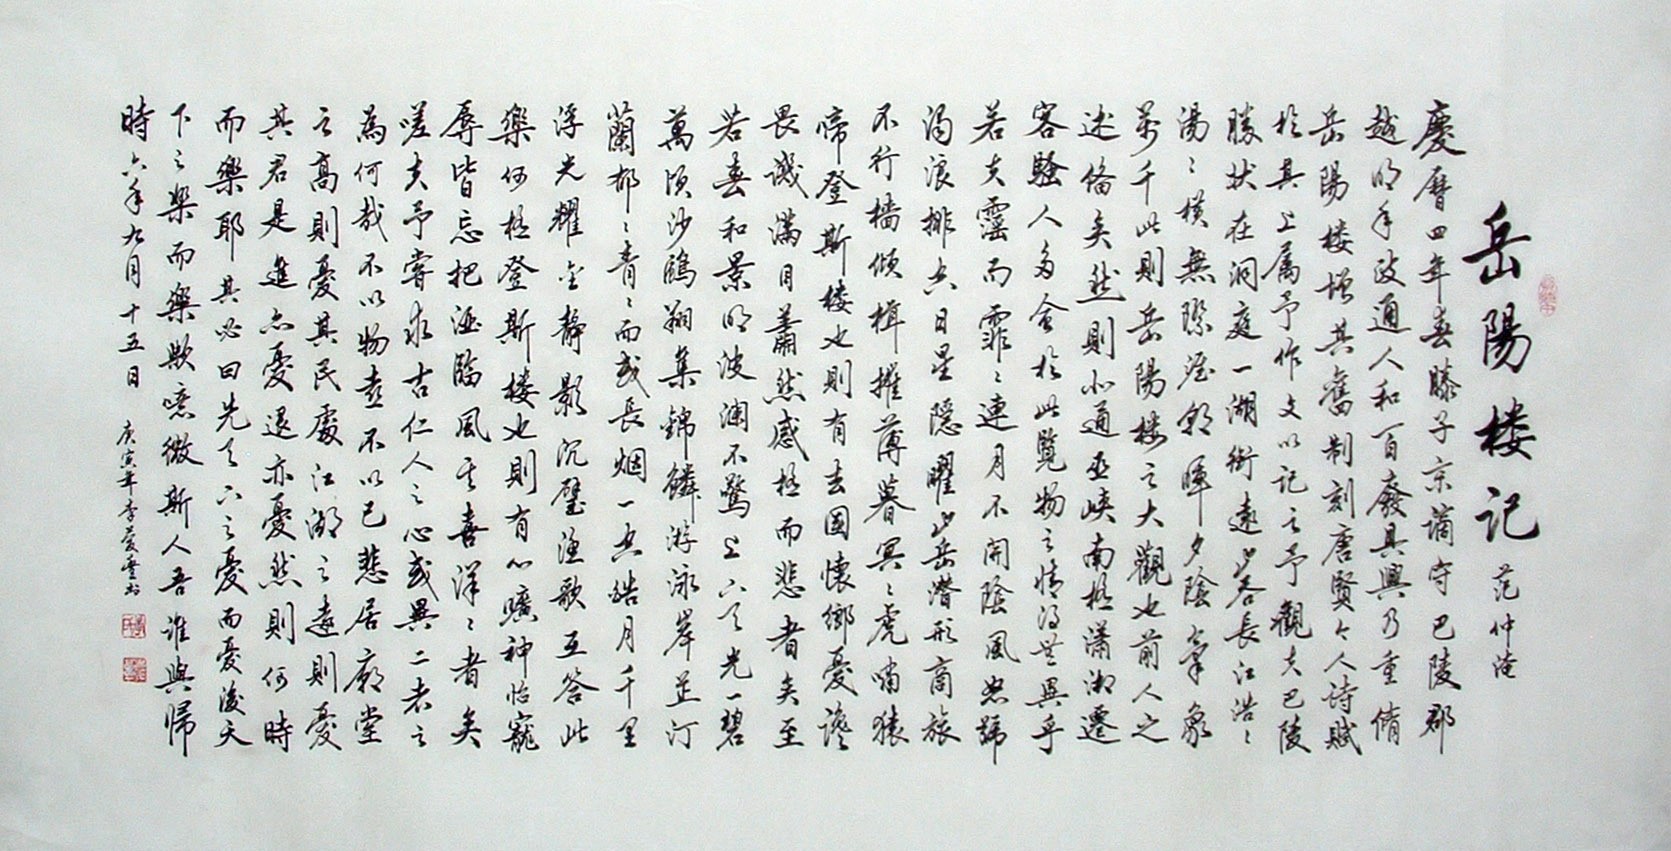 岳陽楼记 范仲淹
慶曆四年春滕子京谪守巴陵郡
越明年政通人和百廢具興乃重脩
岳陽楼增其舊制刻唐賢今人诗赋
於其上属予作文以记之予觀夫巴陵
勝状在洞庭一湖衔遠山吞长江浩〻
湯〻横無際涯朝暉夕陰氣象
万千此則岳陽楼之大觀也前人之
述备矣然則北通巫峡南極瀟湘遷
客騷人多会於此覽物之情得無異乎
若夫霪雨霏〻連月不開陰風怒號
濁浪排空日星隱曜山岳潜形商旅
不行檣傾楫摧薄暮冥〻虎啸猿
啼登斯楼也則有去国懷鄉憂讒
畏譏滿目蕭然感極而悲者矣至
若春和景明波澜不驚上下天光一碧
萬頃沙鷗翔集錦鱗游泳岸芷汀
蘭郁〻青〻而或长烟一空皓月千里
浮光耀金静影沉璧渔歌互答此
樂何極登斯楼也則有心曠神怡寵
辱皆忘把酒臨風其喜洋〻者矣
嗟夫予嘗求古仁人之心或異二者之
為何哉不以物喜不以己悲居廟堂
之高則憂其民處江湖之遠則憂
其君是進亦憂退亦憂然則何時
而樂耶其必曰先天下之憂而憂後天
下之樂而樂歟噫微斯人吾谁與歸
時六年九月十五日 庚寅年李爱云书